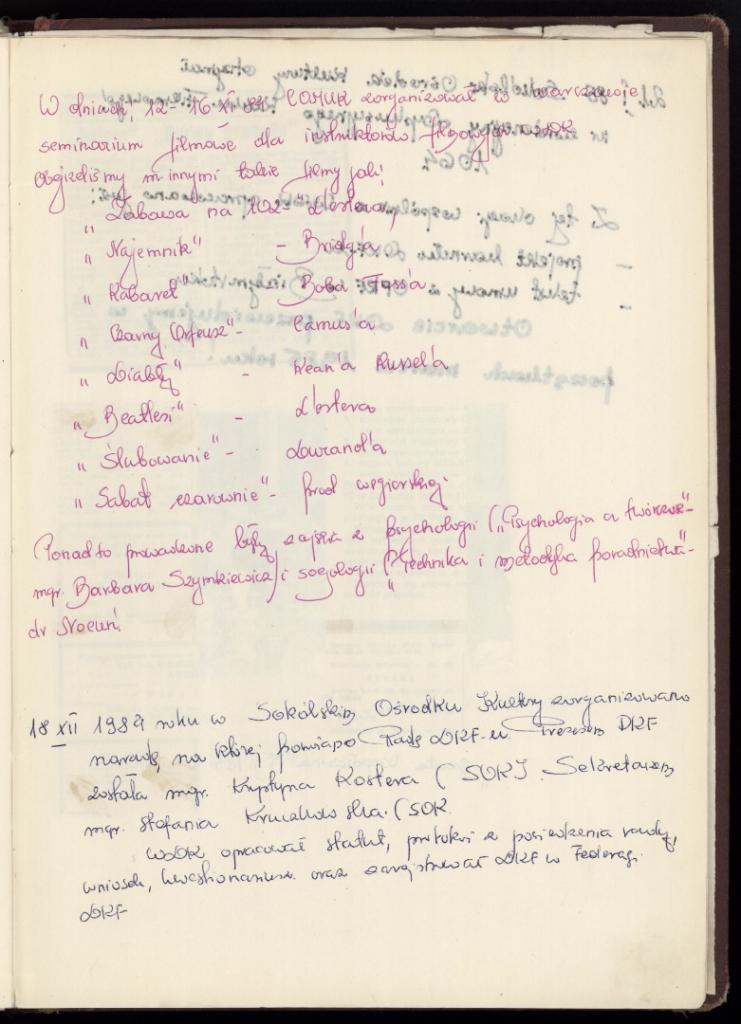 W dniach, 12-16 XI 84 COMUK zorganizował w Warszawie
seminarium filmowe dla instruktorów filmowych
Obejrzeliśmy m innymi takie filmy jak:
„Zabawa na 102-" L'estera,
„Najemnik" - Bridg'a
„Kabaret" - Boba Foss'a
„Czarny Orfeusz" - Camus'a
„Diabły" - Kean'a Russel'a
„Beatlesi" - L'estera
„Ślubowanie" - Durand'a
„Sabat czarownic" - prod węgierskiej.
Ponadto prowadzone były zajęcia z psychologii („Psychologia a twórczość"-
mgr. Barbara Szymkiewicz) i socjologii („Technika i metodyka poradnictwa"-
dr Nocuń.
18 XII 1984 roku w Sokólskim Ośrodku Kultury zorganizowano
naradę, na której powołano Radę DKF-u Prezesem DKF
została mgr. Krystyna Kostera (SOK). Sekretarzem
mgr. Stefania Kruczkowska. (SOK.
WSOK opracował statut, protokół z posiedzenia rady,
wniosek, kwestionariusz oraz zarejestrował DKF w Federacji
DKF